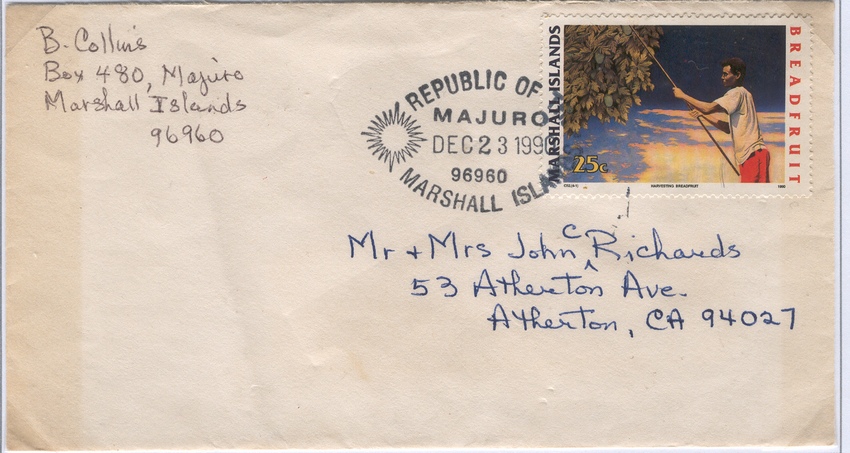 B. Collins
Box 480, Majuro
Marshall Islands
96960
REPUBLIC OF
MAJURO
DEC 23 1990
96960
MARSHALL ISLANDS
MARSHALL ISLANDS
BREADFRUIT
25c
HARVESTING BREADFRUIT
1990
Mr + Mrs John C Richards
53 Atherton Ave.
Atherton, CA 94027